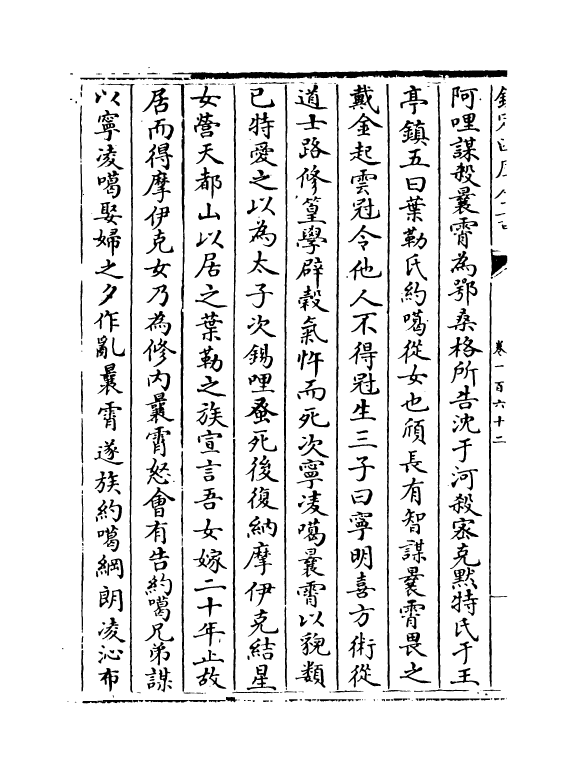 欽定四庫全書
卷一百六十二
阿哩謀殺曩霄為鄂桑格所告沈于河殺宻克黙特氏于王
亭鎮五曰葉勒氏約噶從女也頎長有智謀曩霄畏之
戴金起雲冠令他人不得冠生三子曰寧明喜方術從
道士路修篁學辟榖氣忤而死次寧凌噶曩霄以貌類
已特愛之以為太子次錫哩蚤死後復納摩伊克結星
女營天都山以居之葉勒之族宣言吾女嫁二十年止故
居而得摩伊克女乃為修内曩霄怒會有告約噶兄弟謀
以寧凌噶娶婦之夕作亂曩霄遂族約噶綱朗凌沁布